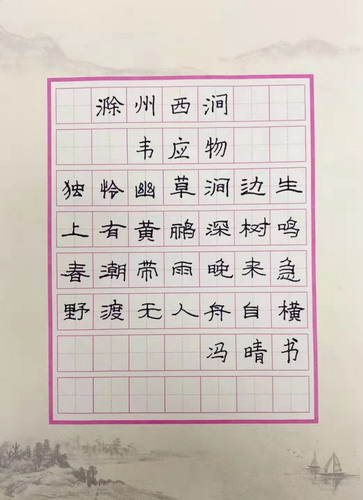 滁州西涧
韦应物
独怜幽草涧边生
上有黄鹂深树鸣
春潮带雨晚来急
野渡无人舟自横
冯晴书